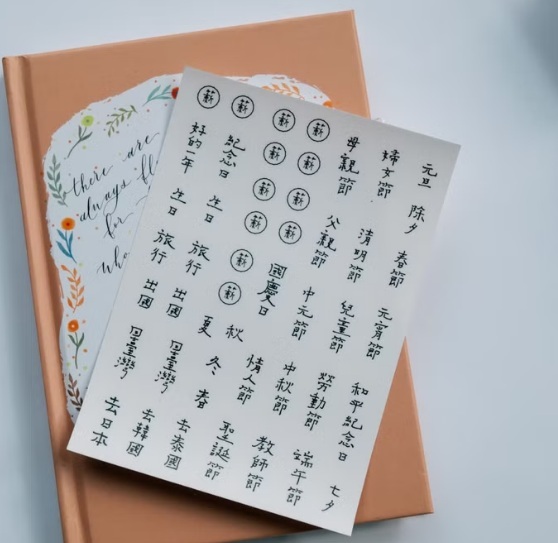 there are
always fl
for
who
元旦 除夕 春節 元宵節 和平紀念日 七夕
婦女節 清明節 兒童節 勞動節 端午節
母親節 父親節 中元節 中秋節 教師節
薪 薪 薪 薪 國慶日 秋 情人節
薪 薪 薪 薪 薪 薪 夏 冬 春 聖誕節
薪 紀念日 生日 旅行 出國 回臺灣 去泰國
薪 好的一年 生日 旅行 出國 回臺灣 去韓國
去日本